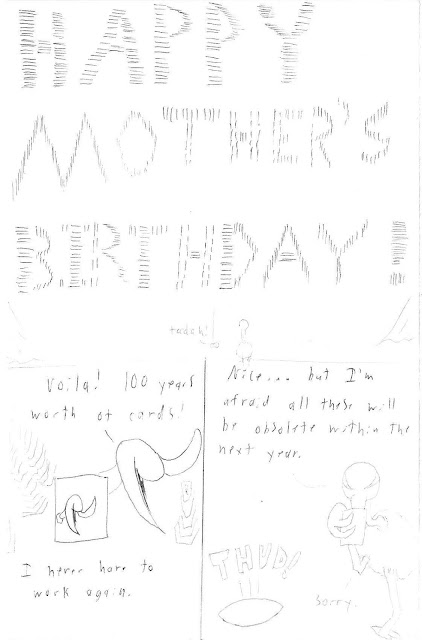 HAPPY
MOTHER'S
BIRTHDAY!
tadah!
?
Voila! 100 years
worth of cards!
I never have to
work again.
Nice... but I'm
afraid all these will
be obsolete within the
next year.
THUD!
Sorry.